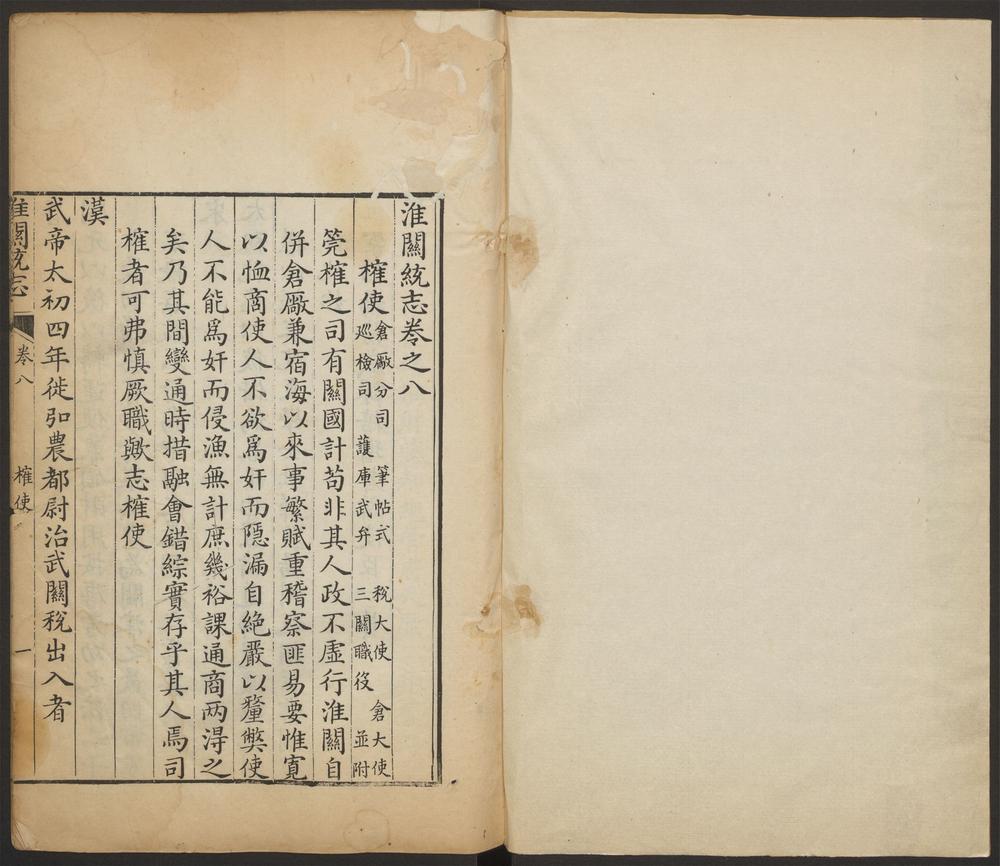 淮關統志卷之八
榷使 倉厰分司 筆帖式 稅大使 倉大使
巡檢司 護庫武弁 三關職役 並附
筦榷之司有關國計苟非其人政不虛行淮關自
併倉厰兼宿海以來事繁賦重稽察匪易要惟寛
以恤商使人不欲爲奸而隱漏自絶嚴以釐獘使
人不能爲奸而侵漁無計庶幾裕課通商两得之
矣乃其間變通時措融會錯綜實存乎其人焉司
榷者可弗慎厥職歟志榷使
漢
武帝太初四年徙弘農都尉治武關稅出入者
淮關統志 卷八 榷使 一